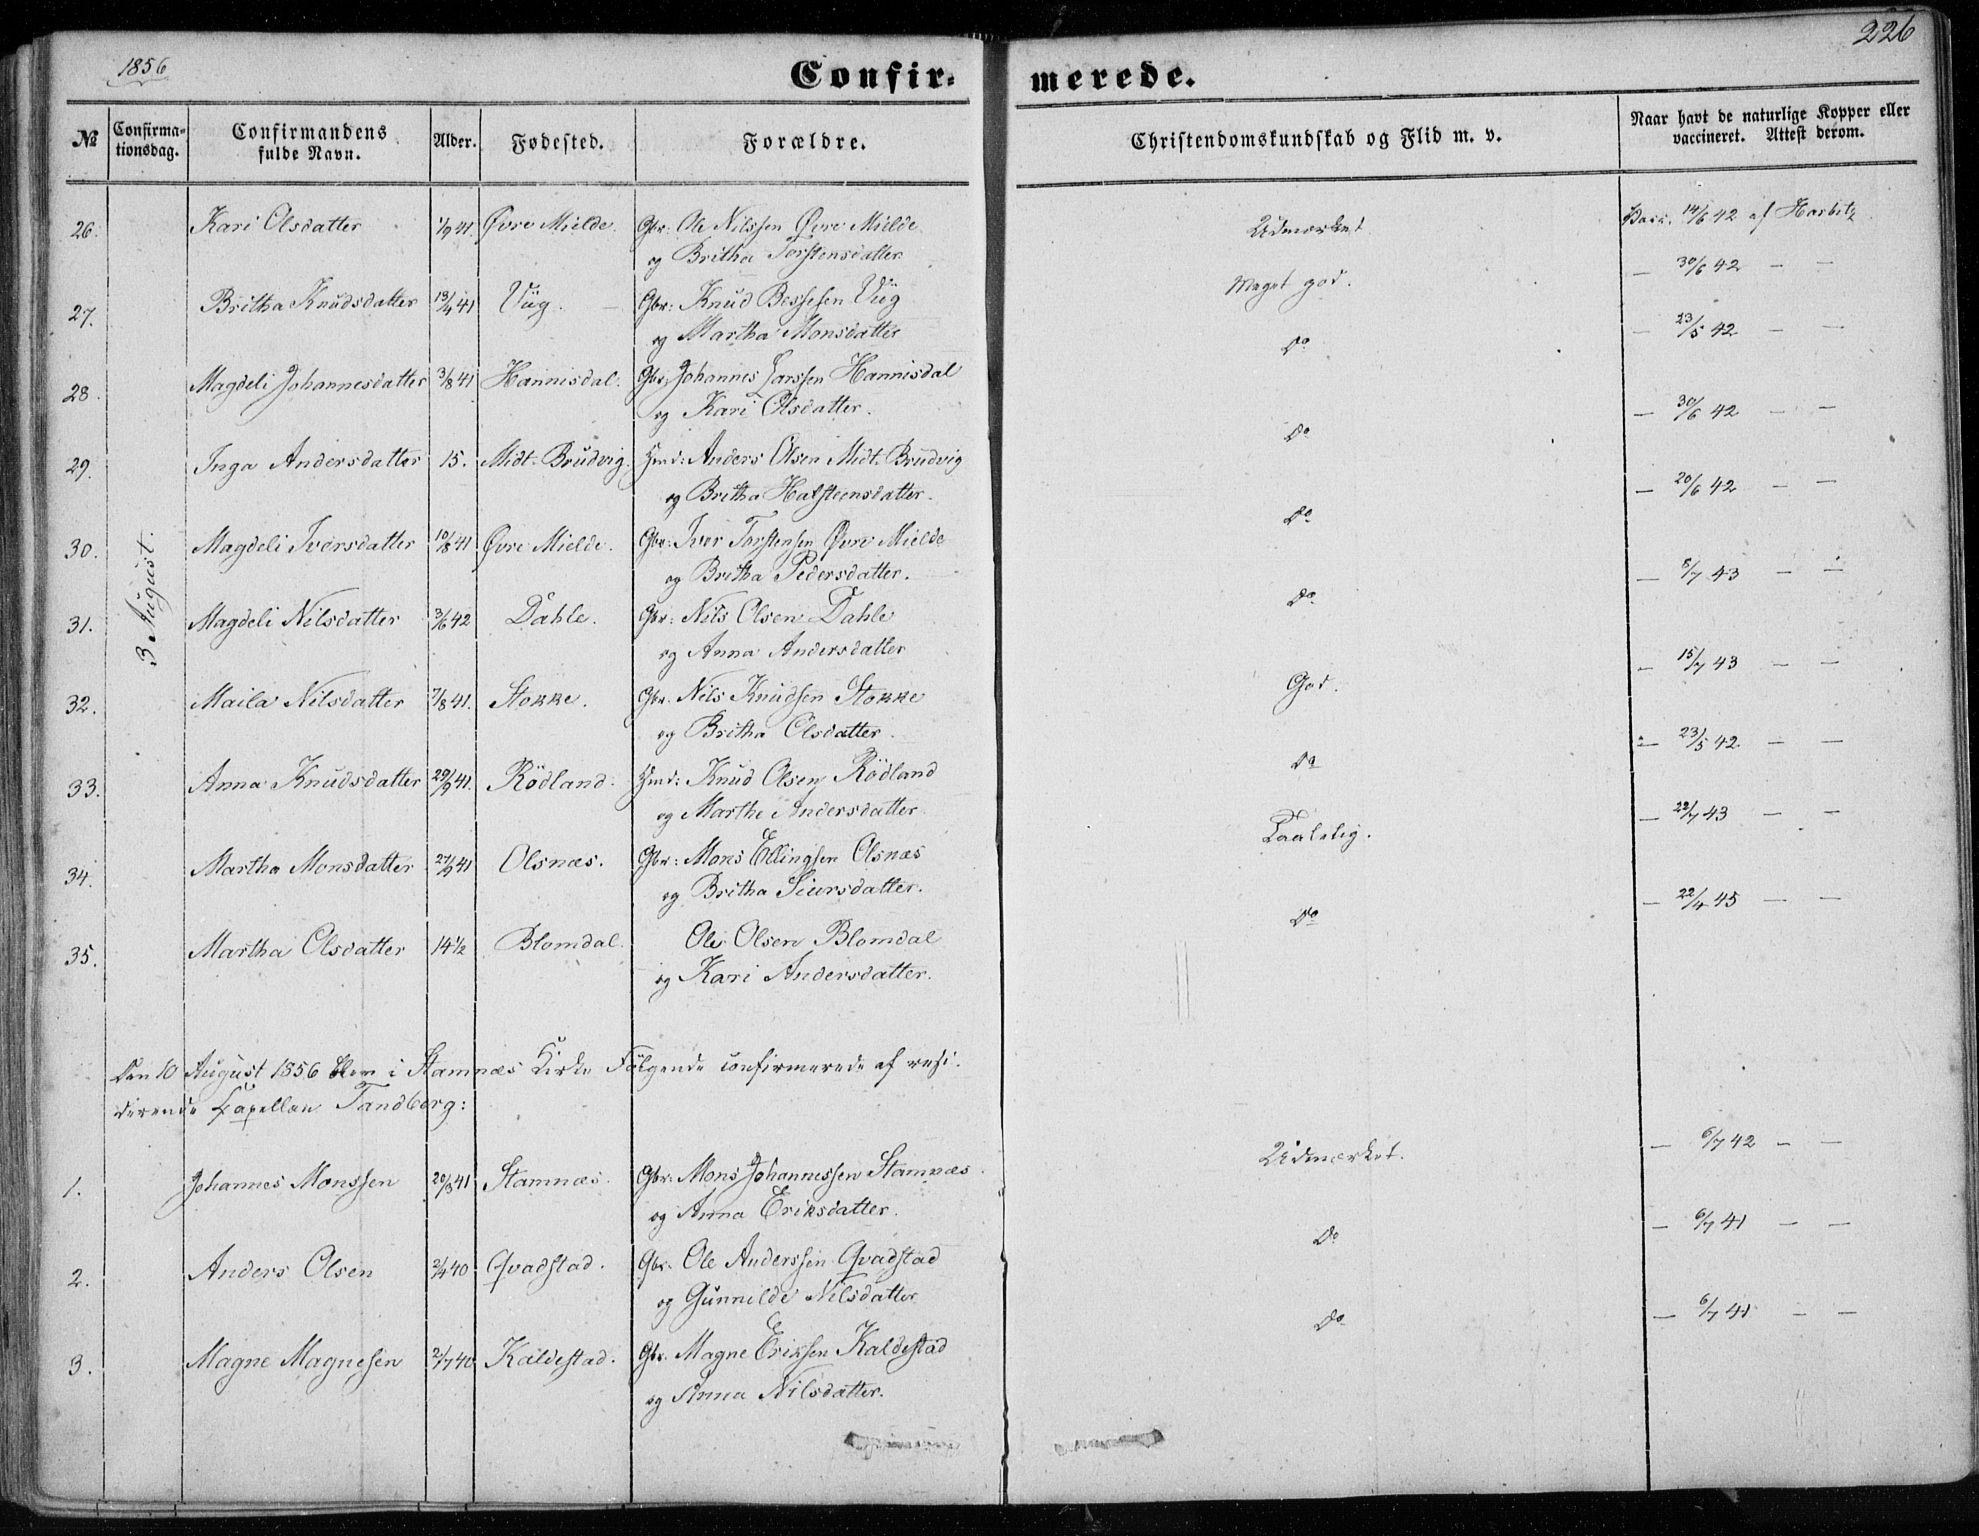 1856
226
Confir- merede.
№ Confirma-tionsdag. Confirmandens fulde Navn. Alder. Fødested. Forældre. Christendomskundskab og Flid m. v. Naar havt de naturlige Kopper eller vaccineret. Attest derom.
3 August.
26. Kari Olsdatter 1/9 41. Øvre Mielde. Gbr: Ole Nilssen Øvre Mielde Udmærket Vacc. 14/6 42 af Harbitz
og Britha Torstensdatter
27. Britha Knudsdatter 13/4 41 Viig. Gbr: Knud Bessesen Viig Meget god. — 30/6 42 — —
og Martha Monsdatter
28. Magdeli Johannesdatter 3/8 41 Hannisdal. Gbr: Johannes Larssen Hannisdal Do — 23/5 42 — —
og Kari Olsdatter.
29. Inga Andersdatter 15. Midt-Brudvig. Hmd: Anders Olsen Midt-Brudvig Do — 30/6 42 — —
og Britha Halsteensdatter.
30. Magdeli Iversdatter 10/8 41 Øvre Mielde. Gbr: Iver Torstensen Øvre Mielde Do — 20/6 42 — —
og Britha Pedersdatter.
31. Magdeli Nilsdatter 3/6 42 Dahle. Gbr: Nils Olsen Dahle Do — 8/7 43 — —
og Anna Andersdatter
32. Maila Nilsdatter 7/8 41. Stokke. Gbr. Nils Knudsen Stokke God. — 15/7 43 — —
og Britha Olsdatter.
33. Anna Knudsdatter 29/9 41. Rödland. Hmd: Knud Olsen Rödland Do — 23/5 42 — —
og Marthe Andersdatter
34. Martha Monsdatter 27/9 41 Olsnæs. Gbr: Mons Ellingsen Olsnæs Taalelig. — 22/7 43 — —
og Britha Siursdatter.
35. Martha Olsdatter 14½ Blomdal. Ole Olsen Blomdal Do — 22/4 45 — —
og Kari Andersdatter.
Den 10 August 1856 blev i Stamnæs Kirke Følgende confirmerede af resi-
derende Capellan Tandberg:
1. Johannes Monssen 20/8 41 Stamnæs. Gbr: Mons Johannessen Stamnæs. Udmærket. — 6/7 42 — —
og Anna Eriksdatter.
2. Anders Olsen 2/4 40 Qvadstad. Gbr. Ole Anderssen Qvadstad Do — 6/7 41 — —
og Gunnilde Nilsdatter
3. Magne Magnesen 2/7 40 Kaldestad. Gbr. Magne Eriksen Kaldestad Do — 6/7 41 — —
og Anna Nilsdatter.